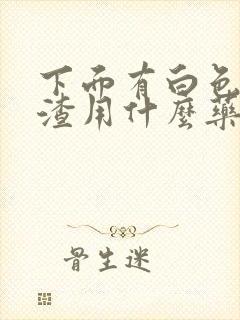 下面有白色
渣用什麼藥
骨生迷